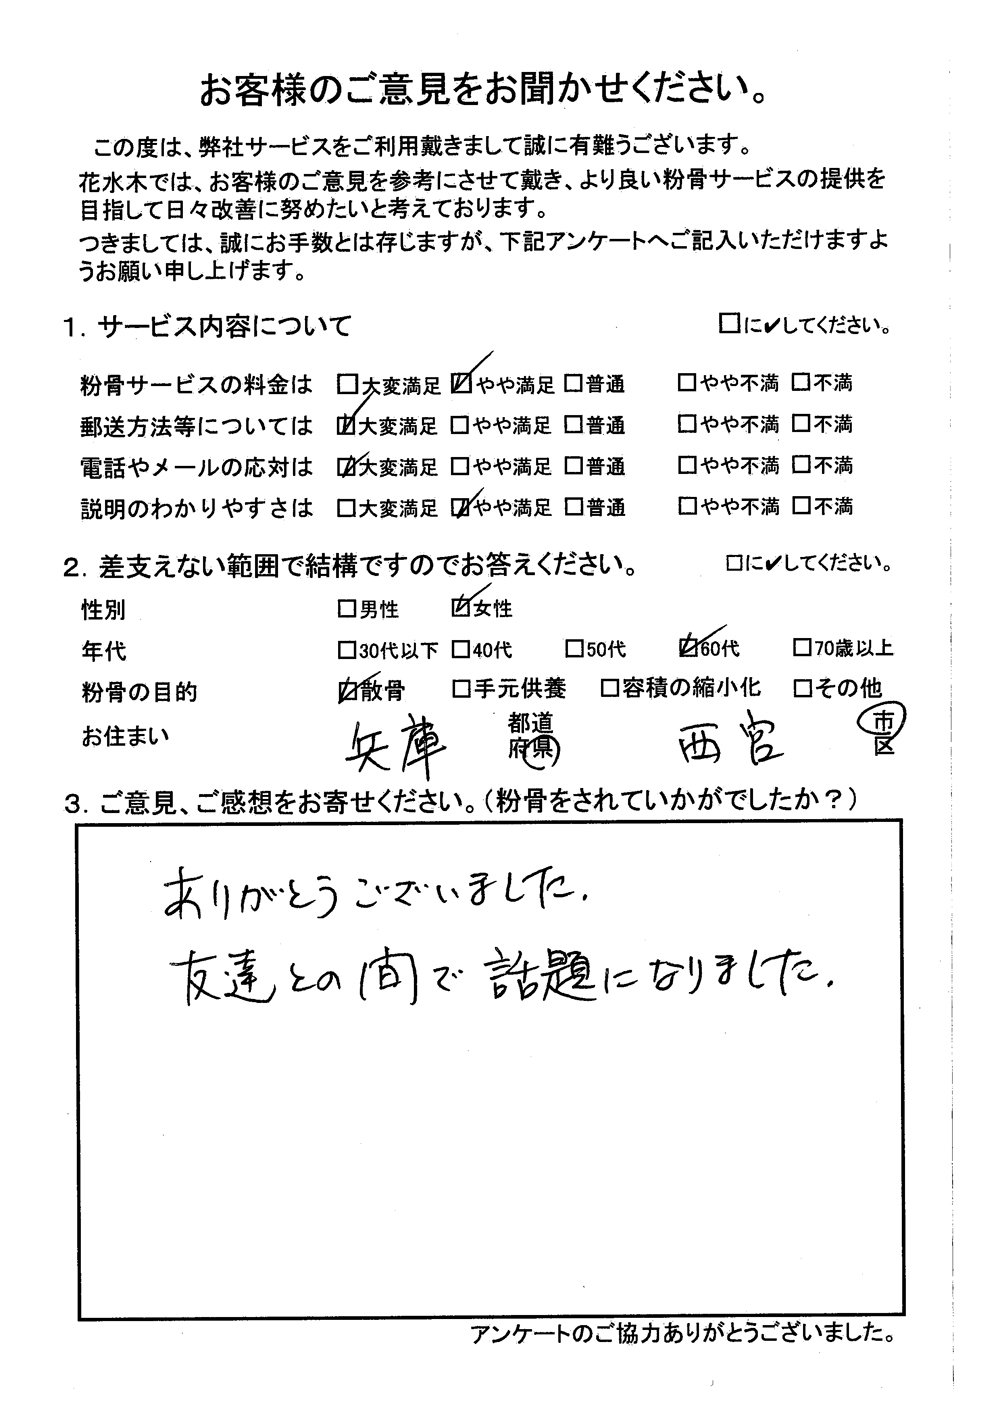 お客様のご意見をお聞かせください。
この度は、弊社サービスをご利用戴きまして誠に有難うございます。
花水木では、お客様のご意見を参考にさせて戴き、より良い粉骨サービスの提供を
目指して日々改善に努めたいと考えております。
つきましては、誠にお手数とは存じますが、下記アンケートへご記入いただけますよ
うお願い申し上げます。
1. サービス内容について □に✔してください。
粉骨サービスの料金は □大変満足 ☑やや満足 □普通 □やや不満 □不満
郵送方法等については ☑大変満足 □やや満足 □普通 □やや不満 □不満
電話やメールの応対は ☑大変満足 □やや満足 □普通 □やや不満 □不満
説明のわかりやすさは □大変満足 ☑やや満足 □普通 □やや不満 □不満
2. 差支えない範囲で結構ですのでお答えください。 □に✔してください。
性別 □男性 ☑女性
年代 □30代以下 □40代 □50代 ☑60代 □70歳以上
粉骨の目的 ☑散骨 □手元供養 □容積の縮小化 □その他
お住まい 兵庫 都道府県 西宮 市区
3. ご意見、ご感想をお寄せください。(粉骨をされていかがでしたか？)
ありがとうございました.
友達との間で話題になりました.
アンケートのご協力ありがとうございました。